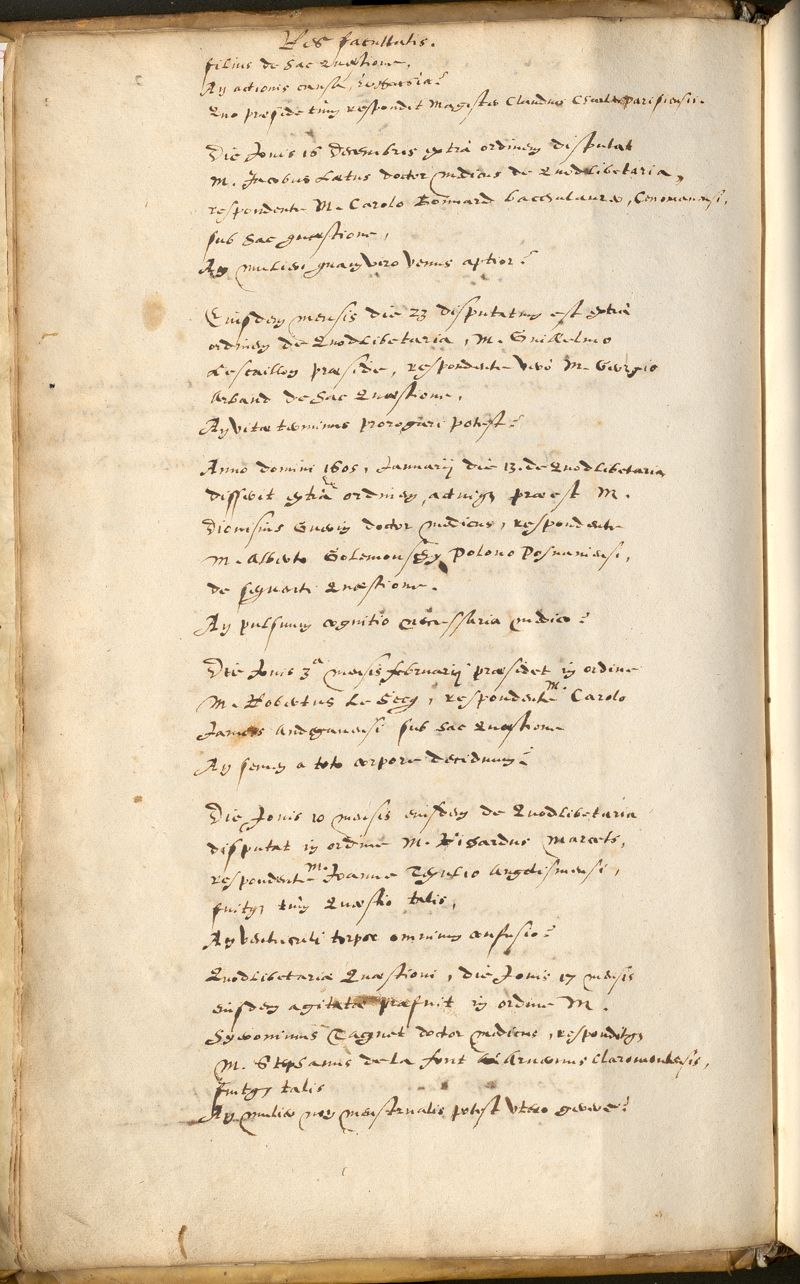 Res facultatis.
filius de hac quæstione,
An actionis causa,
Quo præside tum respondit Magister Claudus parisiensis.
Die Jovis 16 decembris extrà ordinem disputat
M. Jacobus Lætus doctor medicus de Quodlibetaria,
respondente M. Carolo Bonnard bacchalaureo, Cenomanensi,
sub hac quæstione,
An mulieri quam viro venus aptior?
Eiusdem mensis die 23 disputatum est extrà
ordinem de Quodlibetaria, M. Guillelmo
Lescaillon præside, respondente verò M. Georgio
Arband de hac Quæstione,
An vitæ terminus prorogari potest?
Anno domini 1605, Januarij die 13. de Quodlibetaria
disseruit extrà ordinem, actuique præest M.
Dionisius Guerin doctor medicus, respondente
M. Alberto Polono Posnaniensi,
de sequenti Quæstione.
An pulsuum cognitio necessaria medico?
Die Jovis 3ª mensis februarij præsidet in ordine
M. Robertus Le Secq, respondente M. Carolo
Andegavensi sub hac Quæstione
An semen a toto corpore deciduum?
Die Jovis 10 mensis eiusdem de Quodlibetaria
disputat in ordine M. Marcets,
respondente M. Joanne Engolismensi,
fuitque tum Quæstio talis,
An ventriculi torpor omnium confusio?
Quodlibetariæ Quæstioni, die Jovis 17 mensis
eiusdem agitatæ præfuit in ordine M.
Hyeronimus Tagnet doctor medicus, responditque
M. Stephanus de la font Arvernus Claromontensis,
fuitque talis
An mulier non menstrualis potest utero gerere?